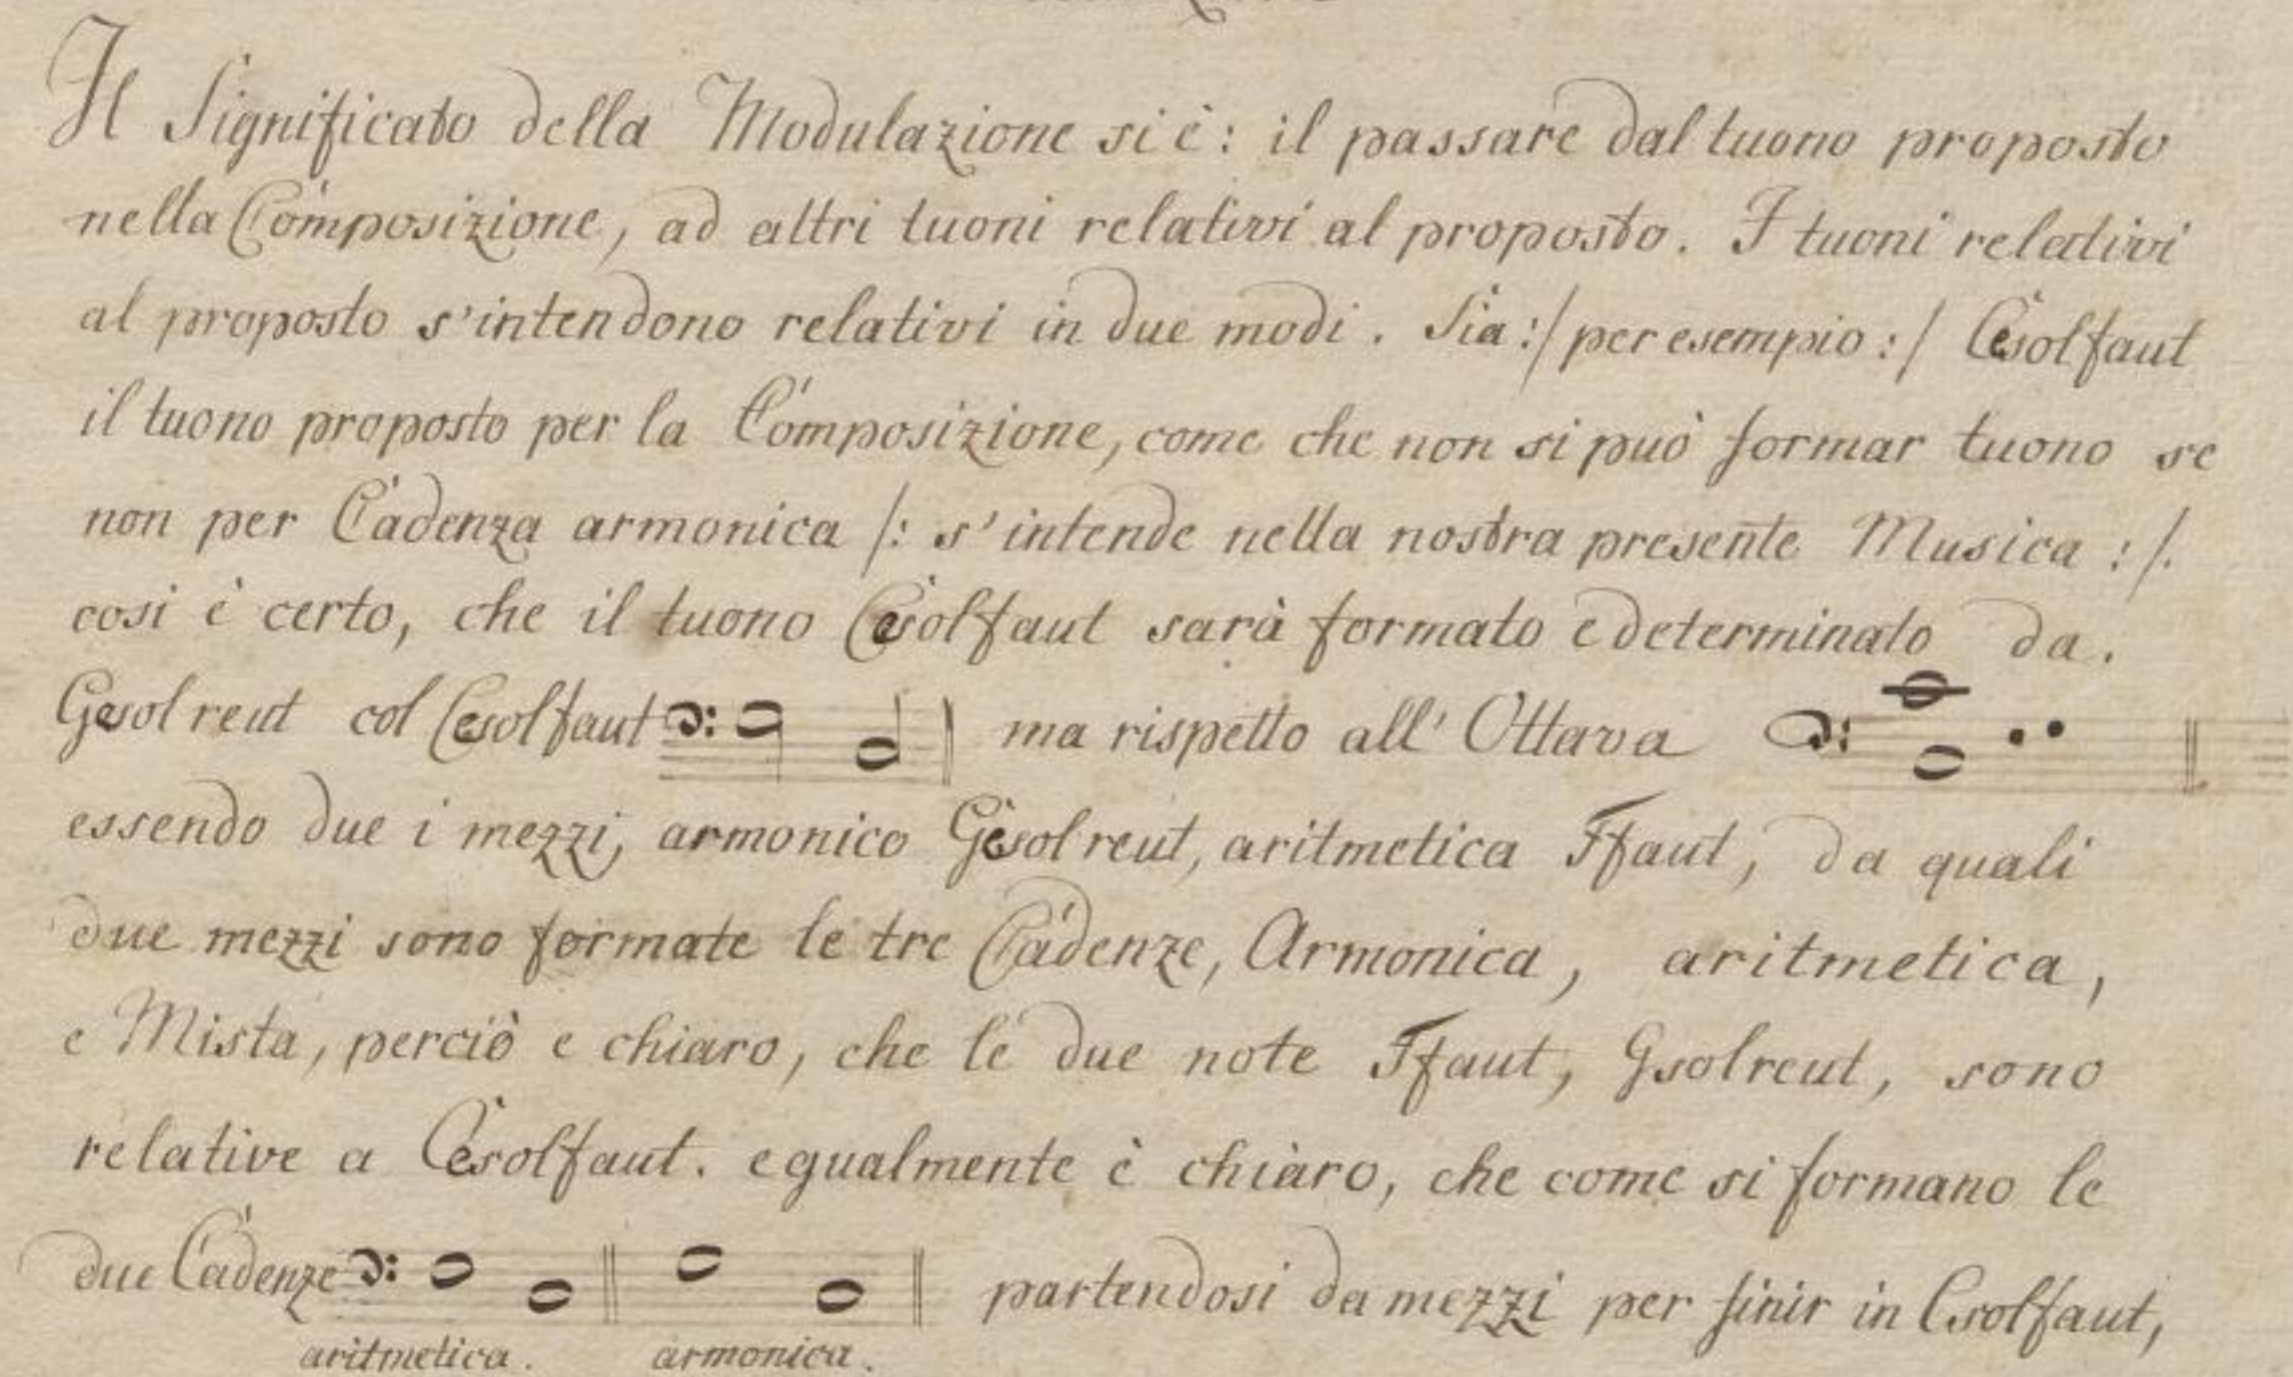 Il Significato della Modulazione si è: il passare dal tuono proposto
nella Composizione, ad altri tuoni relativi al proposto. I tuoni relativi
al proposto s'intendono relativi in due modi. Sia :/ per esempio :/ Cesolfaut
il tuono proposto per la Composizione, come che non si può formar tuono se
non per Cadenza armonica /: s'intende nella nostra presente Musica :/.
cosi è certo, che il tuono Cesolfaut sarà formato e determinato da.
Gesolreut col Cesolfaut ma rispetto all' Ottava
essendo due i mezzi, armonico Gesolreut, aritmetica Ffaut, da quali
due mezzi sono formate le tre Cadenze, Armonica, aritmetica,
e Mista, perciò e chiaro, che le due note Ffaut, Gsolreut, sono
relative a Cesolfaut. egualmente è chiaro, che come si formano le
due Cadenze partendosi da mezzi per finir in Csolfaut,
aritmetica. armonica.